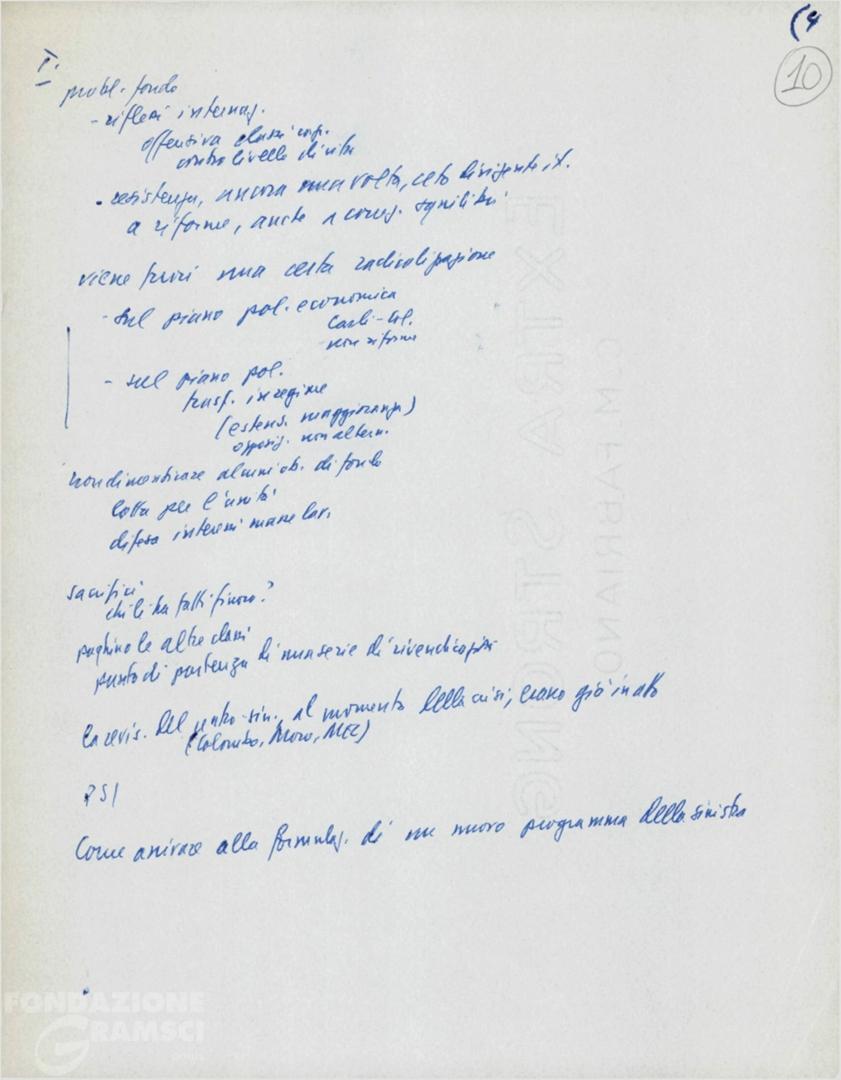 (4
10
I.
probl. fondo
- riflessi internaz.
offensiva classi cap.
contro livello di vita
- resistenza, ancora una volta, ceto dirigente it.
a riforme, anche a correg. squilibri
viene fuori una certa radicalizzazione
- sul piano pol. economica
Carli - Col.
non riforme
- sul piano pol.
trasf. in regime
(estens. maggioranza)
opposiz. non altern.
non dimenticare alcuni ob. di fondo
lotta per l'unità
difesa interessi masse lav.
sacrifici
chi li ha fatti finora?
paghino le altre classi
punto di partenza di una serie di rivendicazioni
la revis. del centro-sin., al momento della crisi, erano già in atto
(Colombo, Moro, MEC)
PSI
Come arrivare alla formulaz. di un nuovo programma della sinistra
EXTRA STRONG
C.M. FABRIANO
FONDAZIONE
GRAMSCI